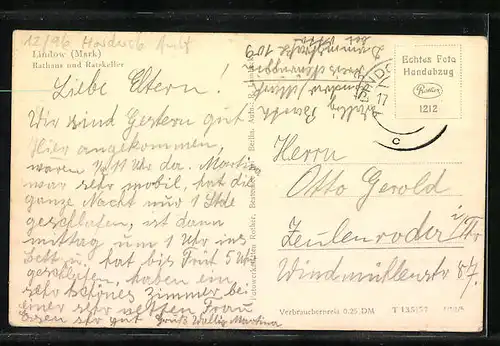 12/96
Lindow (Mark)
Rathaus und Ratskeller
Liebe Eltern!
Wir sind Gestern gut
Hier angekommen,
waren 1/2 11 Uhr da. Martina
war sehr mobil, hat die
ganze Nacht nur 1 Stde
geschlafen, ist dann
mittag um 1 Uhr ins
Bett u. hat bis fünf 5 Uhr
geschlafen, haben ein
sehr schönes Zimmer bei
einer sehr netten Frau
Essen sehr gut Gruß Wallig Martina
Lindow/Mark
109
Echtes Foto
Handabzug
1212
17
c
Herrn
Otto Gerold
Zeulenroda i/Thr
Windmühlenstr 87.
Verbraucherpreis 0.25 DM